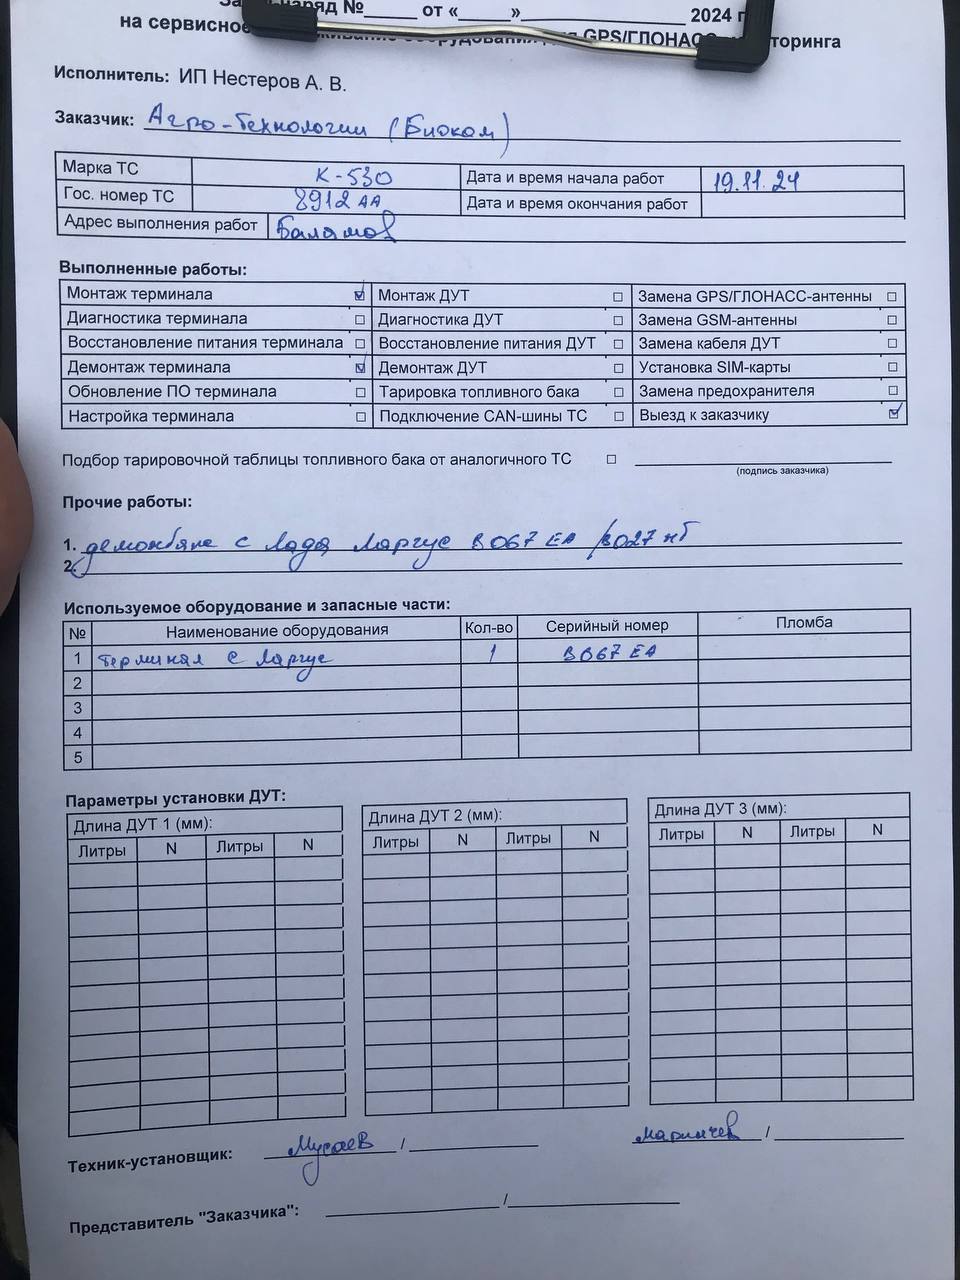 наряд №_____ от «_____»_______________ 2024 г
на сервисное GPS/ГЛОНАСС
Исполнитель: ИП Нестеров А. В.
Заказчик: Агро-Технологии (Биоком)
Марка ТС К-530 Дата и время начала работ 19.11.24
Гос. номер ТС 8912 АА Дата и время окончания работ
Адрес выполнения работ
Выполненные работы:
Монтаж терминала ☑ Монтаж ДУТ □ Замена GPS/ГЛОНАСС-антенны □
Диагностика терминала □ Диагностика ДУТ □ Замена GSM-антенны □
Восстановление питания терминала □ Восстановление питания ДУТ □ Замена кабеля ДУТ □
Демонтаж терминала ☑ Демонтаж ДУТ □ Установка SIM-карты □
Обновление ПО терминала □ Тарировка топливного бака □ Замена предохранителя □
Настройка терминала □ Подключение CAN-шины ТС □ Выезд к заказчику ☑
Подбор тарировочной таблицы топливного бака от аналогичного ТС □
(подпись заказчика)
Прочие работы:
1. с Лада Ларгус В067 ЕА
2.
Используемое оборудование и запасные части:
№ Наименование оборудования Кол-во Серийный номер Пломба
1 терминал с Ларгус 1 В067 ЕА
2
3
4
5
Параметры установки ДУТ:
Длина ДУТ 1 (мм): Длина ДУТ 2 (мм): Длина ДУТ 3 (мм):
Литры N Литры N Литры N Литры N Литры N Литры N
Техник-установщик: Мусаев /
Представитель "Заказчика": /